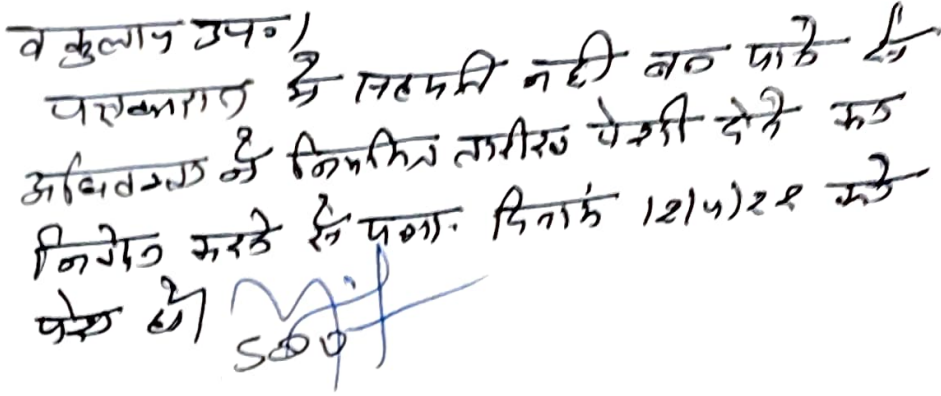 वकुलाय उप०।
पक्षकारान में सहमति नही बन पाने से
अधिवक्ता ने नियमित तारीख पेशी देने का
निवेदन करते हैं पत्रा. दिनांक 12/4/22 को
पेश हो।
SDO